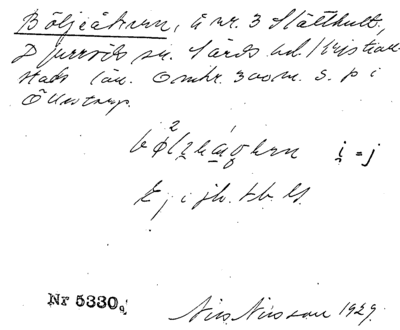 Böljeåkern, å nr. 3 Slätthult,
Djurröds sn. Gärds hd. Kristian-
stads län. Omkr. 300 m. S. p i
Önnetorp.
i = j
E j i jb. hb. ls.
Nr 5330
Nils Nilsson 1929.